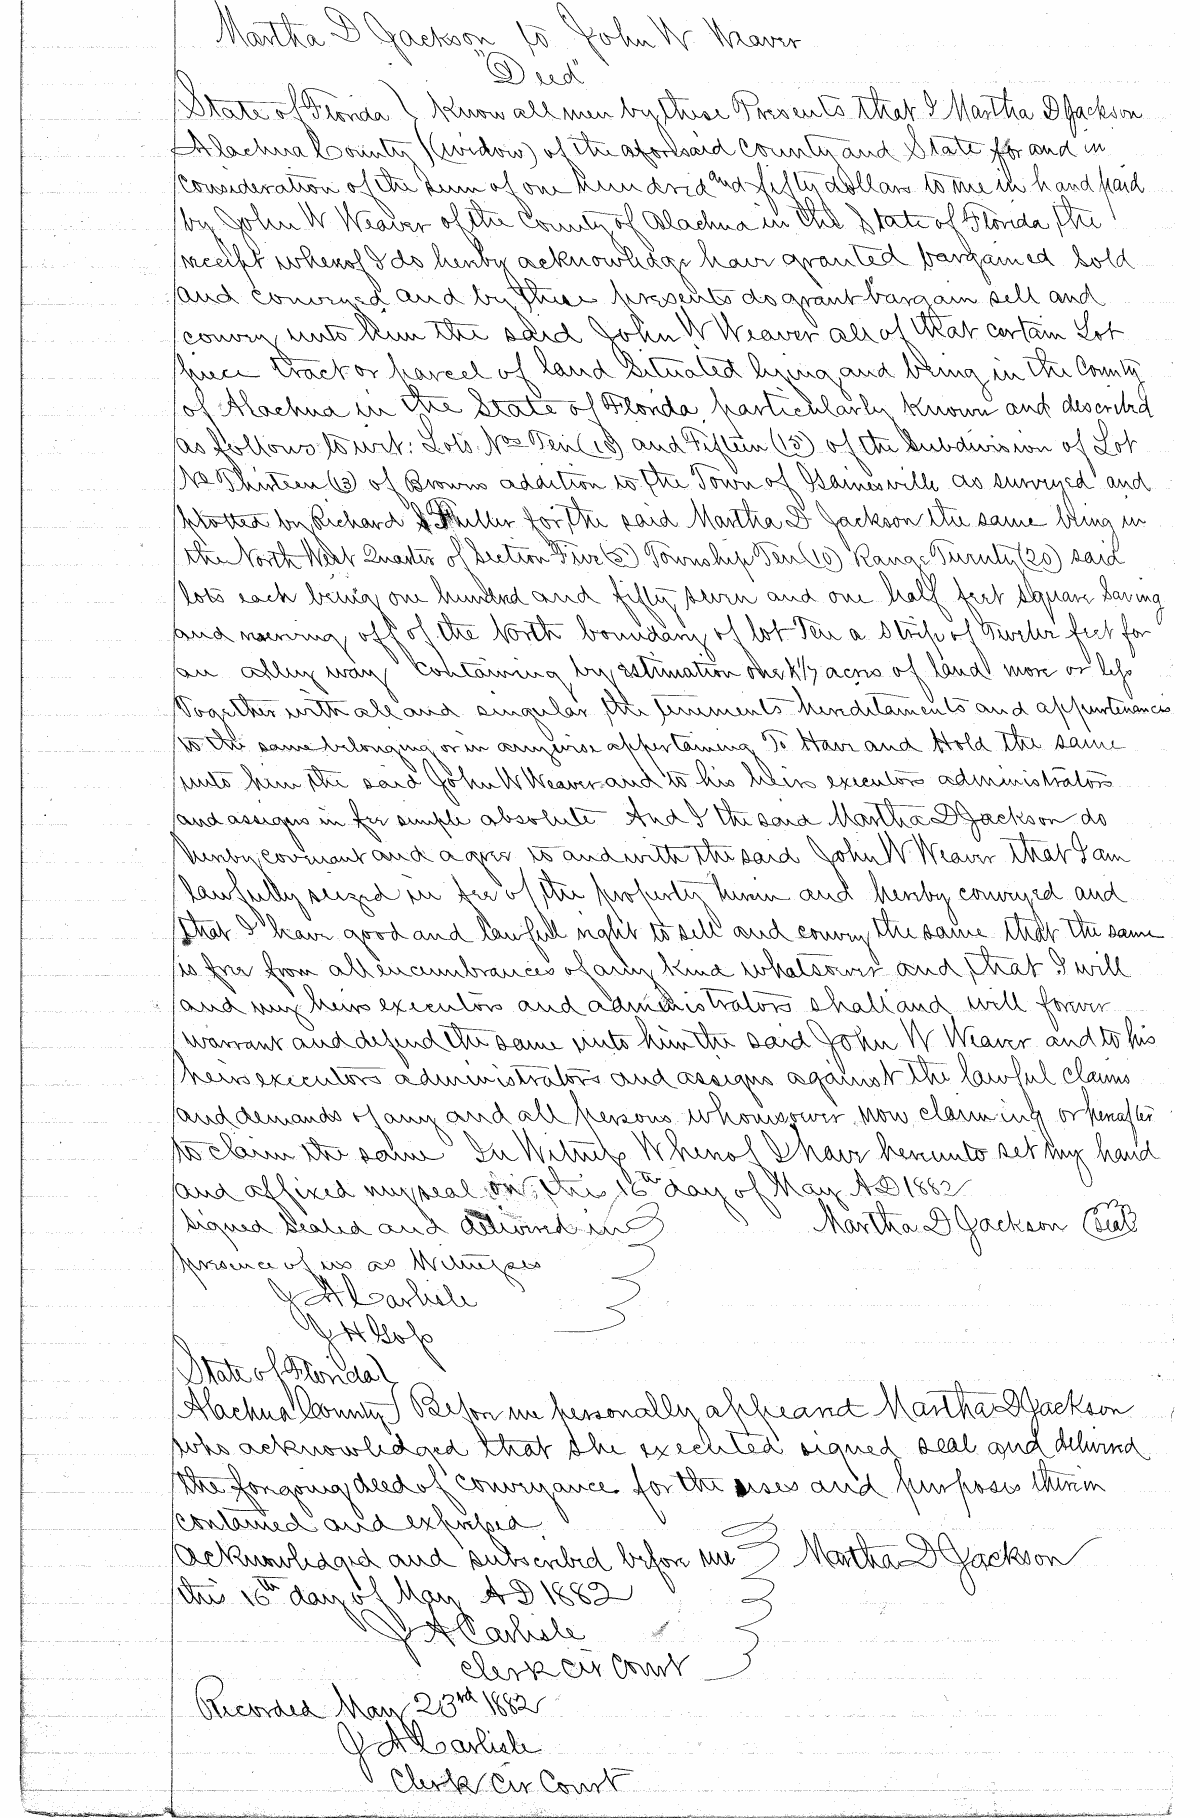 Martha D Jackson to John W Weaver
"Deed"
State of Florida } Know all men by these Presents that I Martha D Jackson
Alachua County } (widow) of the aforesaid County and State for and in
consideration of the sum of one hundred and fifty dollars to me in hand paid
by John W Weaver of the County of Alachua in the State of Florida, the
receipt whereof I do hereby acknowledge have granted bargained sold
and conveyed and by these presents do grant bargain sell and
convey unto him the said John W Weaver all of that certain Lot
piece tract or parcel of land situated lying and being in the County
of Alachua in the State of Florida particularly known and described
as follows to wit: Lots Nos Ten (10) and Fifteen (15) of the subdivision of Lot
No Thirteen (13) of Browns addition to the Town of Gainesville as surveyed and
plotted by Richard for the said Martha D Jackson the same being in
the North West Quarter of Section Five (5) Township Ten (10) Range Twenty (20) said
lots each being one hundred and fifty seven and one half feet square saving
and reserving off of the North boundary of lot Ten a strip of Twelve feet for
an alley way containing by estimation one & 1/7 acres of land more or less
Together with all and singular the tenements hereditaments and appurtenances
to the same belonging or in anywise appertaining To Have and Hold the same
unto him the said John W Weaver and to his heirs executors administrators
and assigns in fee simple absolute And I the said Martha D Jackson do
hereby covenant and agree to and with the said John W Weaver that I am
lawfully seized in fee of the property herein and hereby conveyed and
that I have good and lawfull right to sell and convey the same that the same
is free from all encumbrances of any kind whatsoever and that I will
and my heirs executors and administrators shall and will forever
warrant and defend the same unto him the said John W Weaver and to his
heirs executors administrators and assigns against the lawful claims
and demands of any and all persons whomsoever now claiming or hereafter
to claim the same In Witness Whereof I have hereunto set my hand
and affixed my seal on this 16th day of May AD 1882
signed sealed and delivered in } Martha D Jackson (seal)
presence of us as Witnesses
J A Carlisle
J H Goss
State of Florida }
Alachua County } Before me personally appeared Martha D Jackson
who acknowledged that she executed signed seal and delivered
the foregoing deed of conveyance for the uses and purposes therein
contained and expressed
Acknowledged and subscribed before me } Martha D Jackson
this 16th day of May AD 1882
J A Carlisle
Clerk Cir Court
Recorded May 23rd 1882
J A Carlisle
Clerk Cir Court